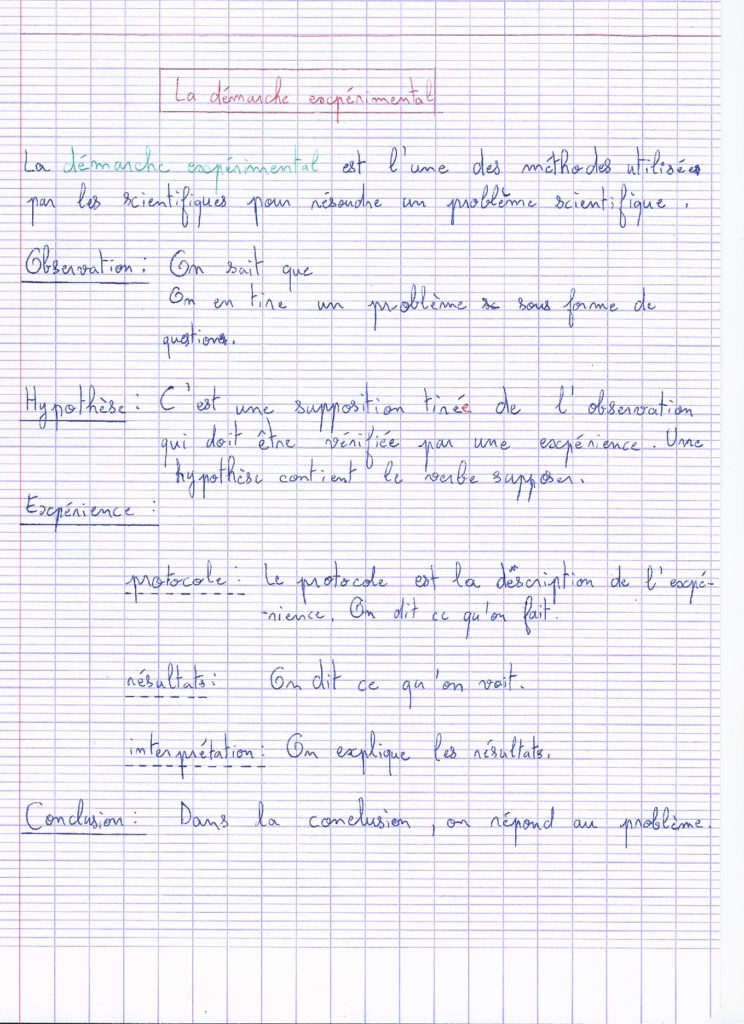 La démarche expérimental
La démarche expérimental est l'une des méthodes utilisées
par les scientifiques pour résoudre un problème scientifique.
Observation : On sait que
On en tire un problème sous forme de
questions.
Hypothèse : C'est une supposition tirée de l'observation
qui doit être vérifiée par une expérience. Une
hypothèse contient le verbe supposer.
Expérience :
protocole : Le protocole est la description de l'expé-
-rience. On dit ce qu'on fait.
résultats : On dit ce qu'on voit.
interprétation : On explique les résultats.
Conclusion : Dans la conclusion, on répond au problème.